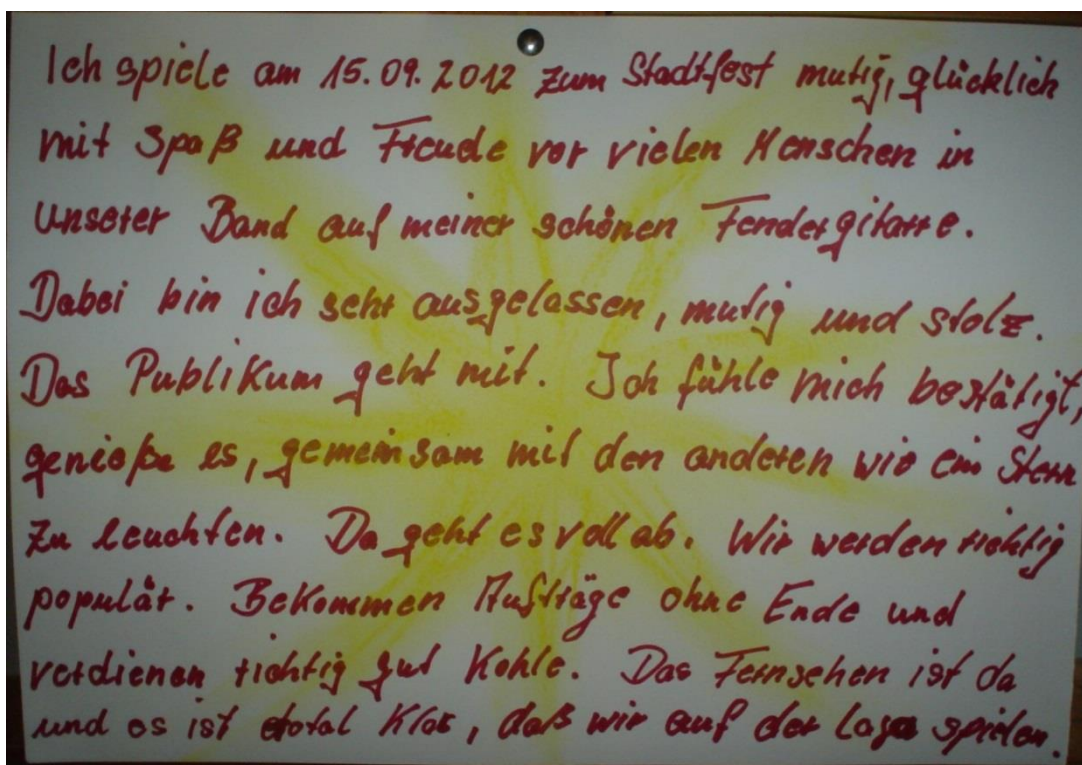 Ich spiele am 15.09.2012 zum Stadtfest mutig, glücklich
mit Spaß und Freude vor vielen Menschen in
unserer Band auf meiner schönen Fendergitarre.
Dabei bin ich sehr ausgelassen, mutig und stolz.
Das Publikum geht mit. Ich fühle mich bestätigt,
genieße es, gemeinsam mit den anderen wie ein Stern
zu leuchten. Da geht es voll ab. Wir werden richtig
populär. Bekommen Aufträge ohne Ende und
verdienen richtig gut Kohle. Das Fernsehen ist da
und es ist total klar, daß wir auf der Laga spielen.